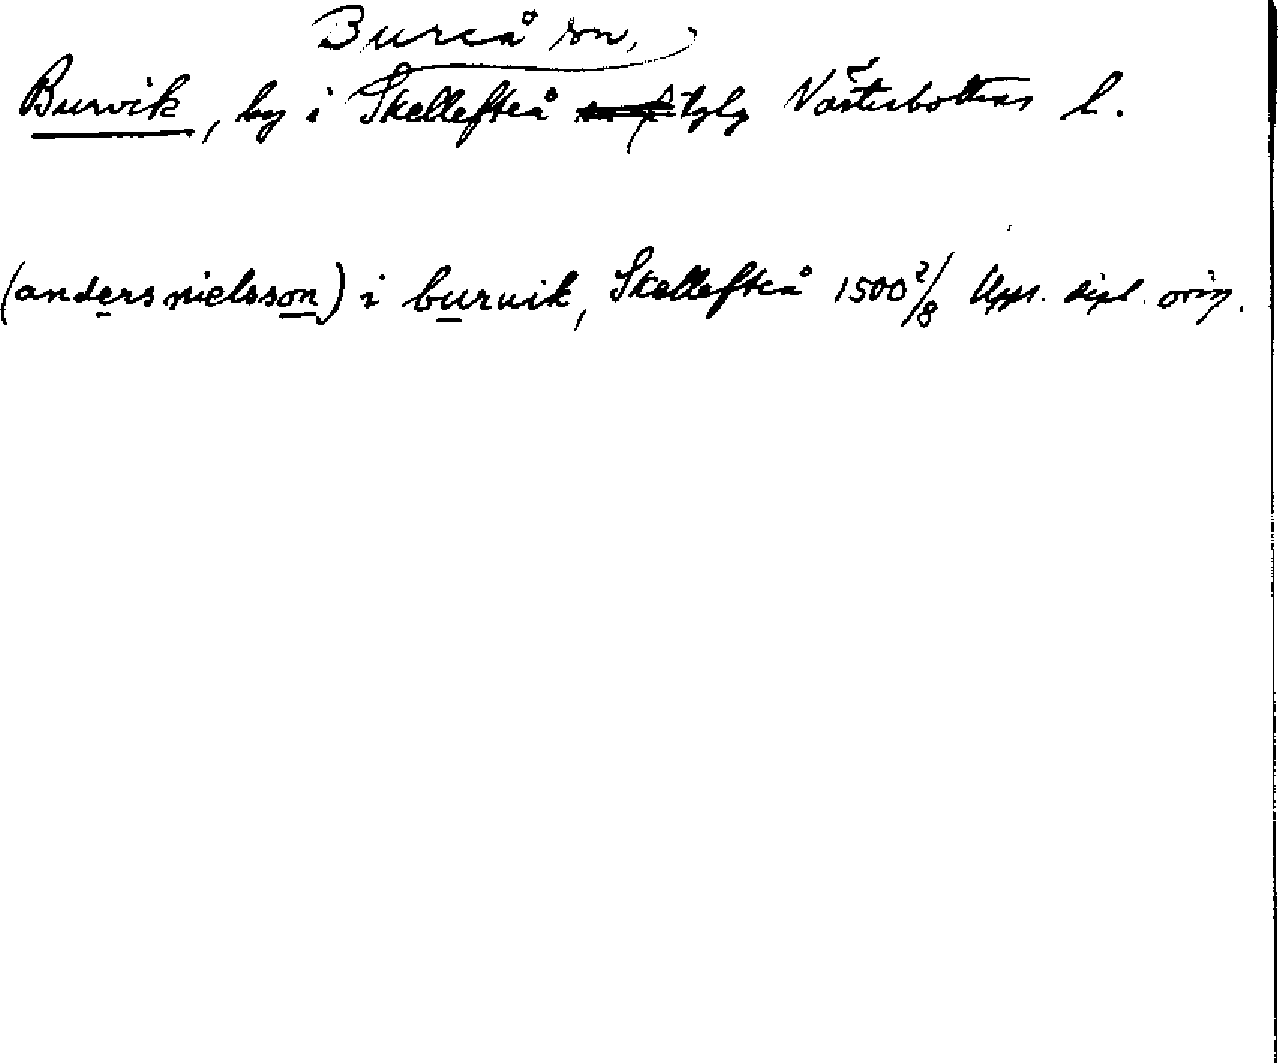 Bureå sn,
Burvik, by i Skellefteå tglg Västerbottens l.
(andersnielsson) i buruik, Skellefteå 1500 2/8 Upps. dipl. orig.